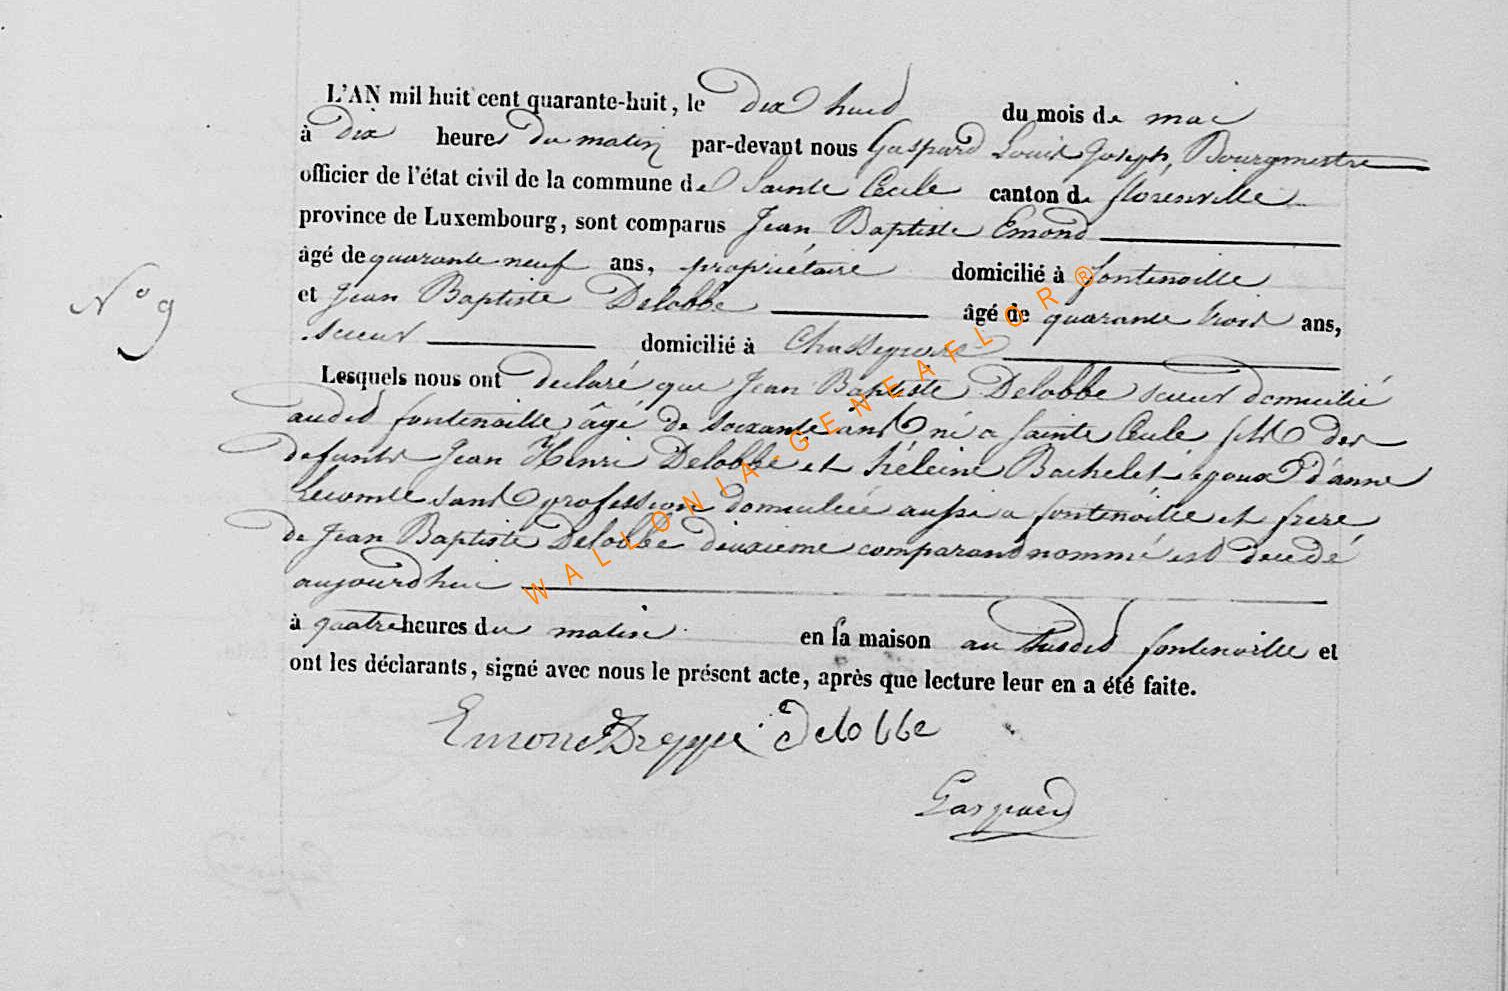 L'AN mil huit cent quarante-huit, le dix huit du mois de mai
à dix heures du matin par-devant nous Gaspard Louis Joseph, Bourgmestre
officier de l'état civil de la commune de Sainte Cécile canton de florenville
province de Luxembourg, sont comparus Jean Baptiste Emond
âgé de quarante neuf ans, propriétaire domicilié à fontenoille
N° 9
et Jean Baptiste Delobbe âgé de quarante trois ans,
scieur domicilié à Chassepierre
Lesquels nous ont declaré que Jean Baptiste Delobbe scieur domicilié
audit fontenoille âgé de soixante ans né a Sainte Cécile fils des
defunts Jean Henri Delobbe et héleine Bachelet epoux d'anne
Lecomte sans profession domiciliée aussi a fontenoille et frere
de Jean Baptiste Delobbe deuxieme comparant nommé est decedé
aujourdhui
à quatre heures du matin en sa maison au susdit fontenoille et
ont les déclarants, signé avec nous le présent acte, après que lecture leur en a été faite.
Emond Delobbe
Gaspard
WALLONIA-GENEAFLOR®